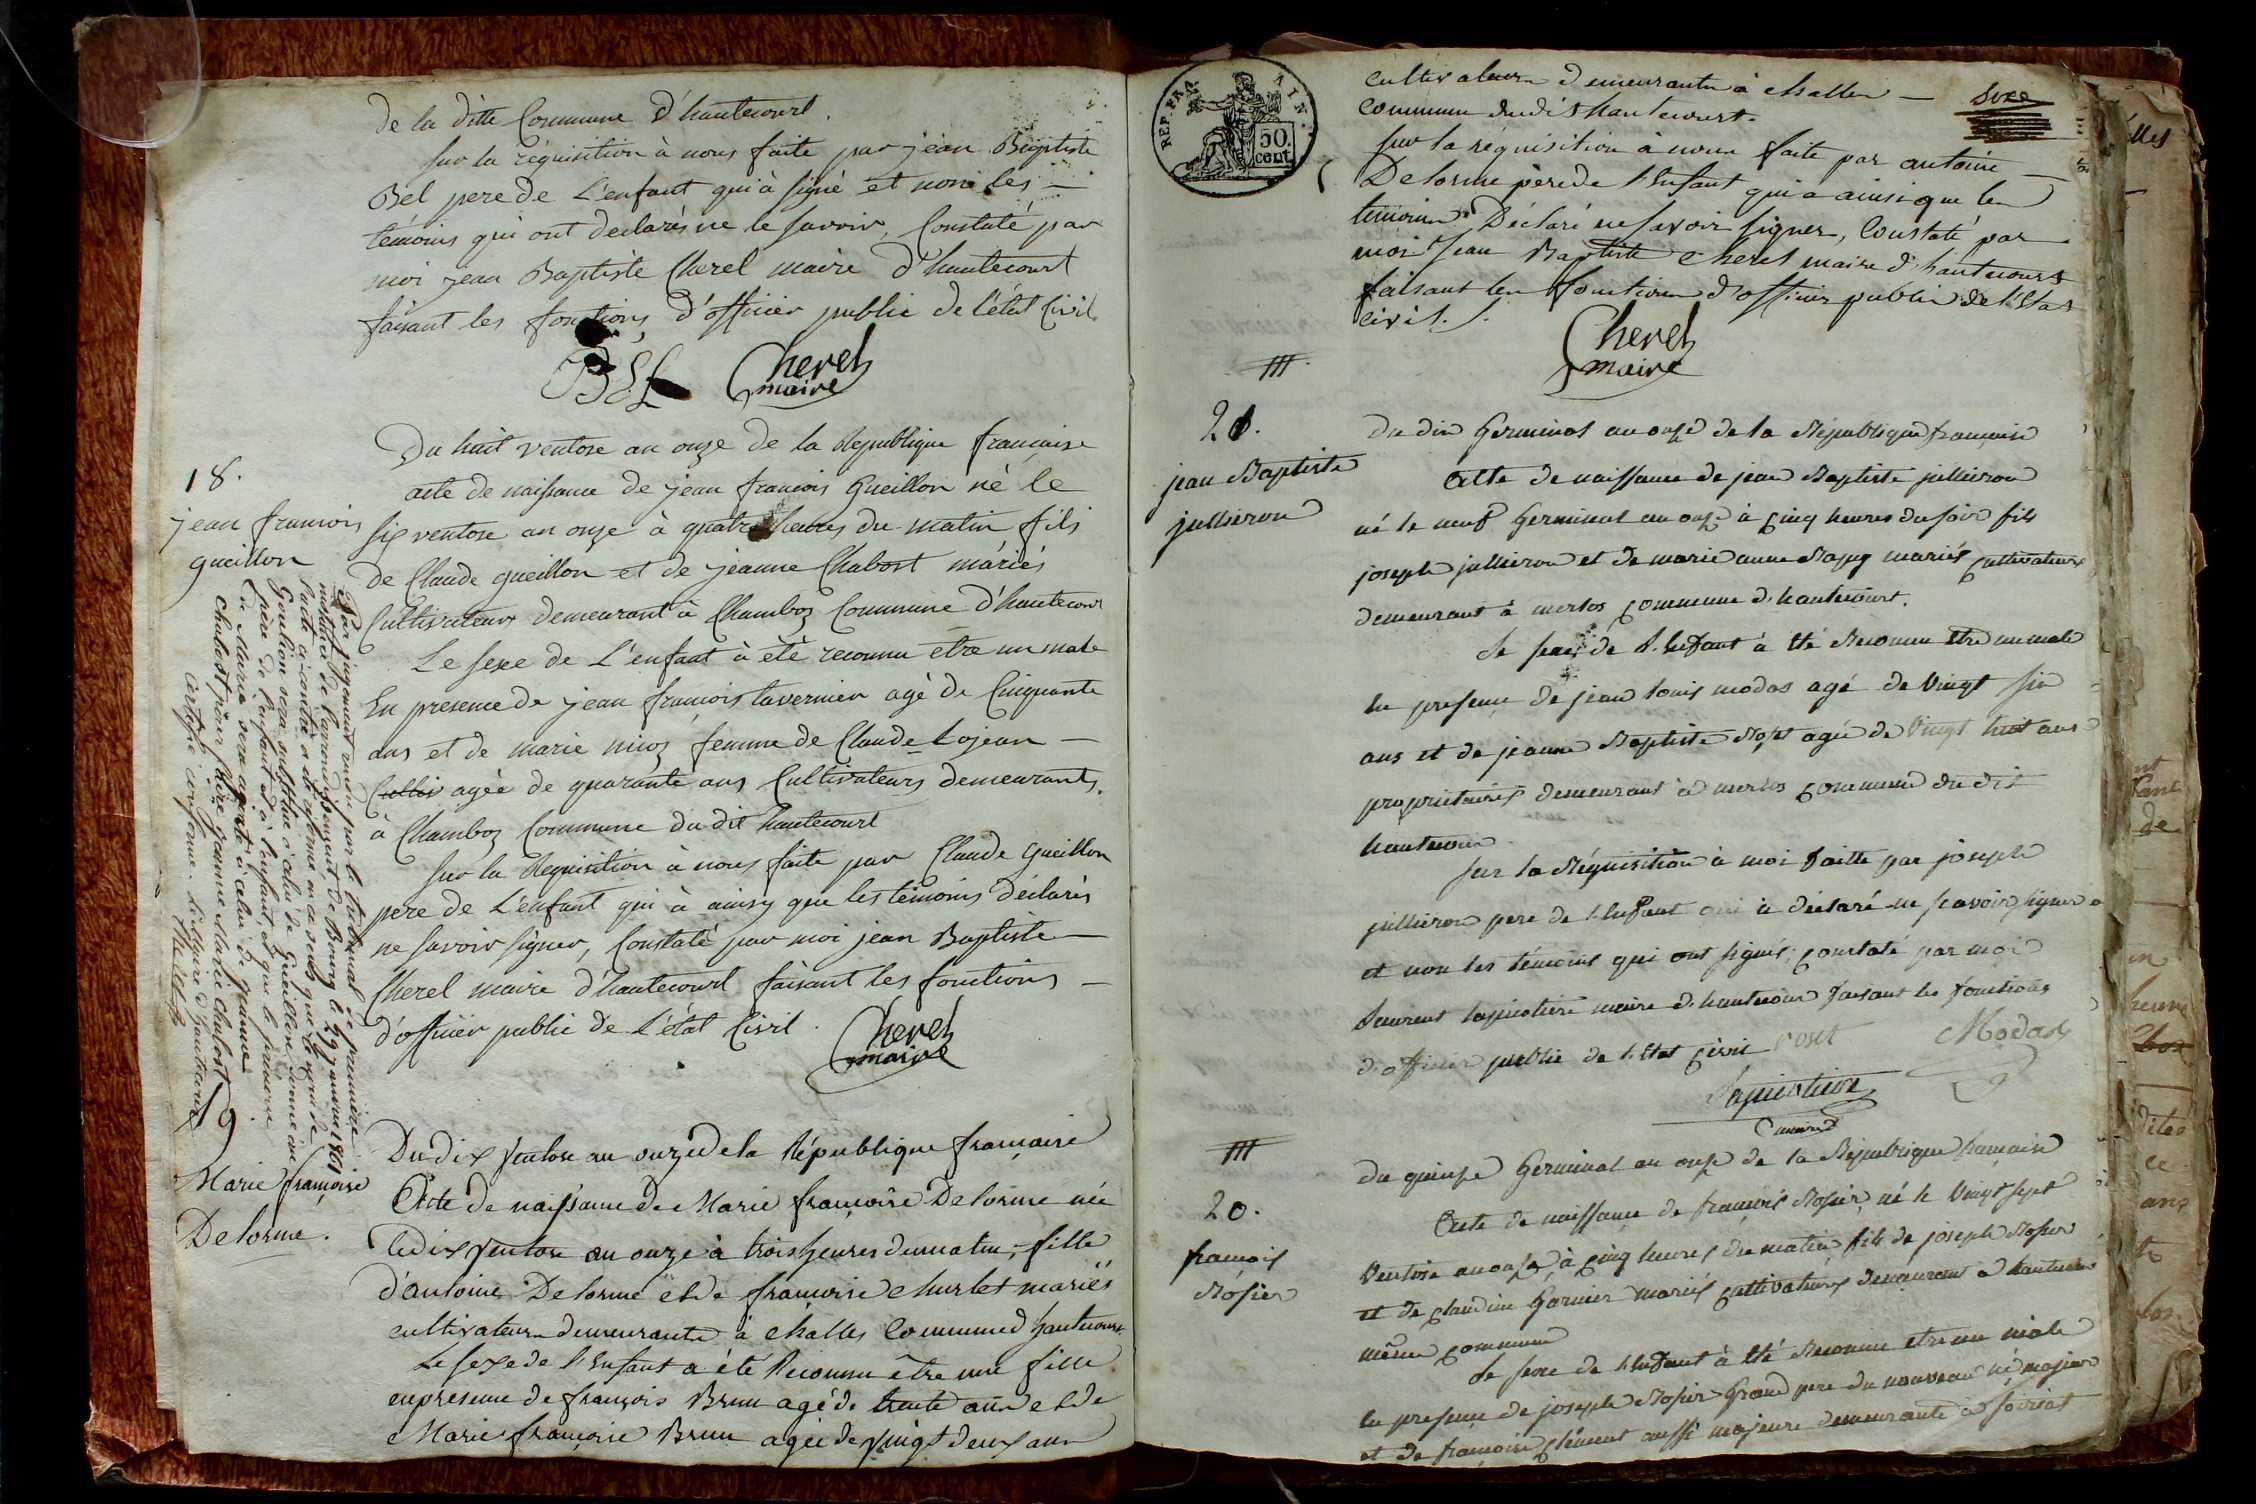 de la ditte Commune d'hautecourt.
sur la réquisition à nous faite par jean Baptiste
Bel pere de L'enfant qui à signé et non les —
témoins qui ont declarés ne le savoir, Constaté par
moi jean Baptiste Cherel maire d'hautecourt
faisant les fonctions d'officier public de l'état Civil.
Bel Cherel
maire
18.
jean francois
gueillon
Du huit ventose an onze de la République francaise
acte de naissance de jean francois Gueillon né le
six ventose an onze à quatre heures du matin fils
de Claude gueillon et de jeanne Chabost máriés
Cultivateurs demeurant à Chamboz Commune d'hautecour
Le sexe de L'enfant à été reconnu etre un male
En presence de jean francois tavernier agé de Cinquante
ans et de marie nicoz femme de Claude Lojean —
Cultiv agée de quarante ans Cultivateurs demeurants.
à Chamboz Commune du dit hautecourt
sur la Requisition à nous faite par Claude gueillon
pere de L'enfant qui à ainsy que les témoins déclarés
ne savoir signer, Constaté par moi jean Baptiste —
Cherel maire d'hautecourt faisant les fonctions —
d'officier public de L'état Civil.
Cherel
maire
Par jugement rendu par le tribunal de première
instance de l'arrondissement de Bourg le 29 1861
l'acte ci-contre a été réformé en ce sens que le nom de
Goulion sera substitué à celui de Gueillon donné au
père de l'enfant et à l'enfant et que le prénom
de Marie sera ajouté à celui de jeanne
Chabost mère jeanne Marie Chabost
Certifié conforme. Le Maire d'hautecourt
19.
Marie françoise
Delorme.
Du dix ventose an onze de la République française
Acte de naissance de Marie françoise Delorme née
le dix ventose an onze à trois heures du matin, fille
d'antoine Delorme et de francoise Churlet mariés
cultivateurs demeurants à Challes Commune d'hautecourt
Le sexe de l'Enfant a été Reconnu être une fille
en presence de françois Brun agé de trente ans et de
Marie françoise Brun agée de vingt deux ans
REP. FRA
50
cent.
cultivateurs demeurants à challes —
commune du dit hautecourt.
sur la réquisition à nous faite par antoine —
Delorme père de l'Enfant qui a ainsi que les
témoins Déclaré ne savoir signer, Constaté par
moi Jean Baptiste Cherel maire d'hautecourt
faisant les fonctions d'officier public de l'Etat
civil.
Cherel
maire
20.
jean Baptiste
jullieron
Du dix Germinal an onze de la République française
Acte de naissance de jean Baptiste jullieron
né le neuf Germinal an onze à cinq heures du soir fils
joseph jullieron et de marie anne mariés cultivateurs
demeurant à merlos commune d'hautecourt.
Le sexe de l'Enfant à été Reconnu etre un male
En presence de jean louis modas agé de vingt six
ans et de jeanne Baptiste Roset agée de vingt huit ans
proprietaires demeurant à merlos commune du dit
hautecour.
sur la Réquisition à moi faitte par joseph
jullieron pere de l'Enfant qui à déclaré ne savoir signer
et non les témoins qui ont signés; constaté par moi
Laurent lapierotiere maire d'hautecour faisant les fonctions
d'officier public de l'Etat civil roset Modas
maire
20.
francois
Rosier
du quinze Germinal an onze de la République francaise
Acte de naissance de françois Rosier né le vingt sept
ventose an onze à cinq heures du matin fils de joseph Rosier
et de claudine Garnier mariés cultivateurs demeurant à hautecour
même commune
Le sexe de l'Enfant à été Reconnu etre un male
En presence de joseph Rosier Grand pere du nouveau né majeur
et de françoise clément aussi majeure demeurante à soiriat